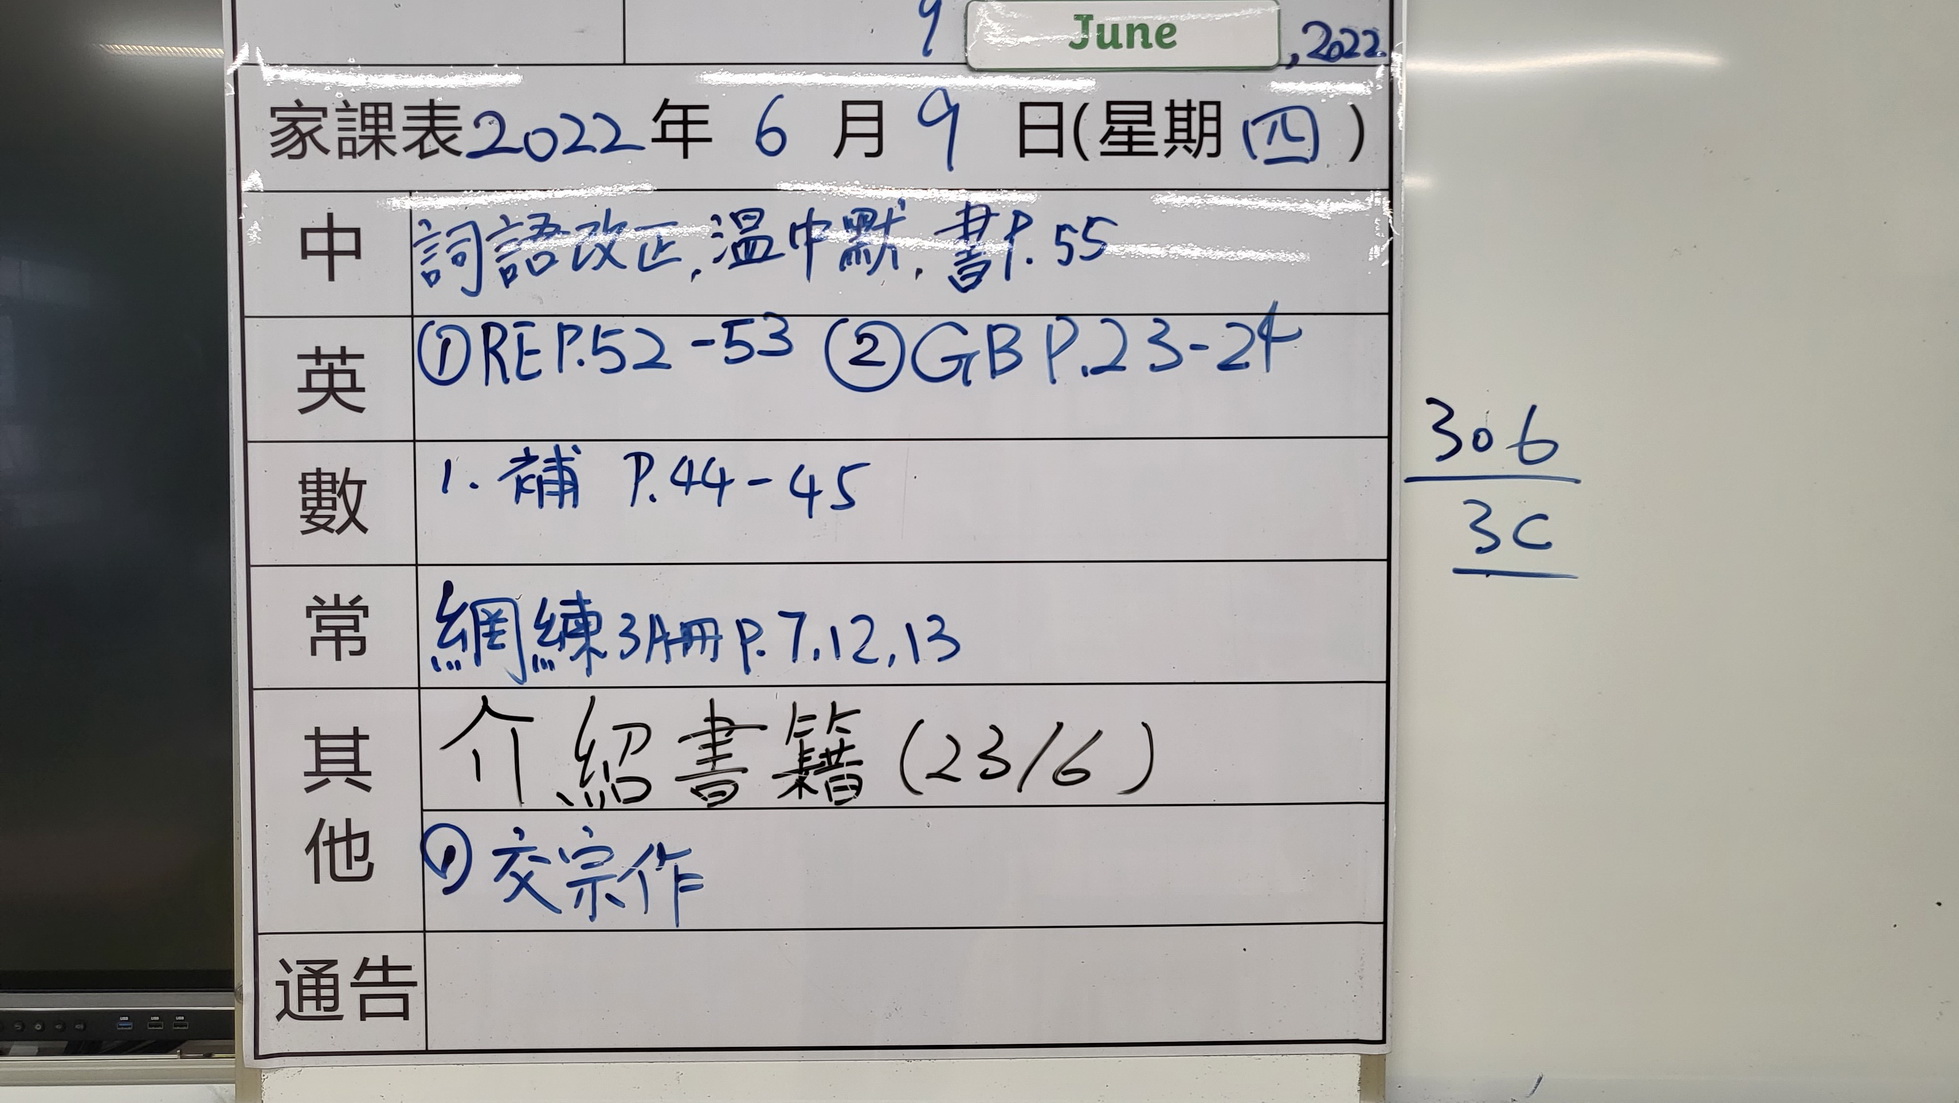 9 June , 2022
家課表2022年 6 月 9 日(星期 四 )
中 詞語改正,溫中默,書P.55
英 ①REP.52-53 ②GB P.23-24
數 1. 補 P.44-45
常 網練3A冊P.7,12,13
其他 介紹書籍(23/6)
① 交宗作
通告
306
3C